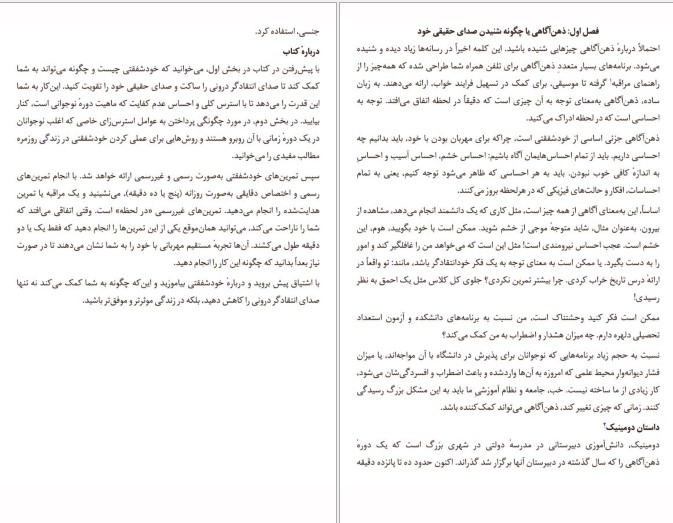 جنسی، استفاده کرد.
دربارهٔ کتاب
با پیش‌رفتن در کتاب در بخش اول، می‌خوانید که خودشفقتی چیست و چگونه می‌تواند به شما
کمک کند تا صدای انتقادگر درونی را ساکت و صدای حقیقی خود را تقویت کنید. این‌کار به شما
این قدرت را می‌دهد تا با استرس کلی و احساس عدم کفایت که ماهیت دورهٔ نوجوانی است، کنار
بیایید. در بخش دوم، در مورد چگونگی پرداختن به عوامل استرس‌زای خاصی که اغلب نوجوانان
در یک دورهٔ زمانی با آن روبرو هستند و روش‌هایی برای عملی کردن خودشفقتی در زندگی روزمره
مطالب مفیدی را می‌خوانید.
سپس تمرین‌های خودشفقتی به‌صورت رسمی و غیررسمی ارائه خواهد شد. با انجام تمرین‌های
رسمی و اختصاص دقایقی به‌صورت روزانه (پنج یا ده دقیقه)، می‌نشینید و یک مراقبه یا تمرین
هدایت‌شده را انجام می‌دهید. تمرین‌های غیررسمی «در لحظه» است. وقتی اتفاقی می‌افتد که
شما را ناراحت می‌کند، می‌توانید همان‌موقع یکی از این تمرین‌ها را انجام دهید که فقط یک یا دو
دقیقه طول می‌کشند. آن‌ها تجربهٔ مستقیم مهربانی با خود را به شما نشان می‌دهند تا در صورت
نیاز بعداً بدانید که چگونه این کار را انجام دهید.
با اشتیاق پیش بروید و دربارهٔ خودشفقتی بیاموزید و این‌که چگونه به شما کمک می‌کند نه تنها
صدای انتقادگر درونی را کاهش دهید، بلکه در زندگی موثرتر و موفق‌تر باشید.
فصل اول: ذهن‌آگاهی یا چگونه شنیدن صدای حقیقی خود
احتمالاً دربارهٔ ذهن‌آگاهی چیزهایی شنیده باشید. این کلمه اخیراً در رسانه‌ها زیاد دیده و شنیده
می‌شود. برنامه‌های بسیار متعددِ ذهن‌آگاهی برای تلفن همراه شما طراحی شده که همه‌چیز را از
راهنمای مراقبه¹ گرفته تا موسیقی، برای کمک در تسهیل فرایند خواب، ارائه می‌دهند. به زبان
ساده، ذهن‌آگاهی به‌معنای توجه به آن چیزی است که دقیقاً در لحظه اتفاق می‌افتد. توجه به
احساسی است که در لحظه ادراک می‌کنید.
ذهن‌آگاهی جزئی اساسی از خودشفقتی است، چراکه برای مهربان بودن با خود، باید بدانیم چه
احساسی داریم. باید از تمام احساس‌هایمان آگاه باشیم: احساس خشم، احساس آسیب و احساسِ
به اندازهٔ کافی خوب نبودن. باید به هر احساسی که ظاهر می‌شود توجه کنیم، یعنی به تمام
احساسات، افکار و حالت‌های فیزیکی که در هرلحظه بروز می‌کنند.
اساساً، این به‌معنای آگاهی از همه چیز است، مثل کاری که یک دانشمند انجام می‌دهد، مشاهده از
بیرون. به‌عنوان مثال، شاید متوجهٔ موجی از خشم شوید. ممکن است با خود بگویید، هوم، این
خشم است. عجب احساس نیرومندی است! مثل این است که می‌خواهد من را غافلگیر کند و امور
را به دست بگیرد. یا ممکن است به معنای توجه به یک فکر خودانتقادگر باشد، مانند: تو واقعاً در
ارائهٔ درس تاریخ خراب کردی. چرا بیشتر تمرین نکردی؟ جلوی کل کلاس مثل یک احمق به نظر
رسیدی!
ممکن است فکر کنید وحشتناک است، من نسبت به برنامه‌های دانشکده و آزمون استعداد
تحصیلی دلهره دارم. چه میزان هشدار و اضطراب به من کمک می‌کند؟
نسبت به حجم زیاد برنامه‌هایی که نوجوانان برای پذیرش در دانشگاه با آن مواجه‌اند، یا میزان
فشار دیوانه‌وارِ محیط علمی که امروزه به آن‌ها واردشده و باعث اضطراب و افسردگی‌شان می‌شود،
کار زیادی از ما ساخته نیست. خب، جامعه و نظام آموزشی ما باید به این مشکل بزرگ رسیدگی
کنند. زمانی که چیزی تغییر کند، ذهن‌آگاهی می‌تواند کمک‌کننده باشد.
داستان دومینیک²
دومینیک، دانش‌آموزی دبیرستانی در مدرسهٔ دولتی در شهری بزرگ است که یک دورهٔ
ذهن‌آگاهی را که سال گذشته در دبیرستان آنها برگزار شد گذراند. اکنون حدود ده تا پانزده دقیقه